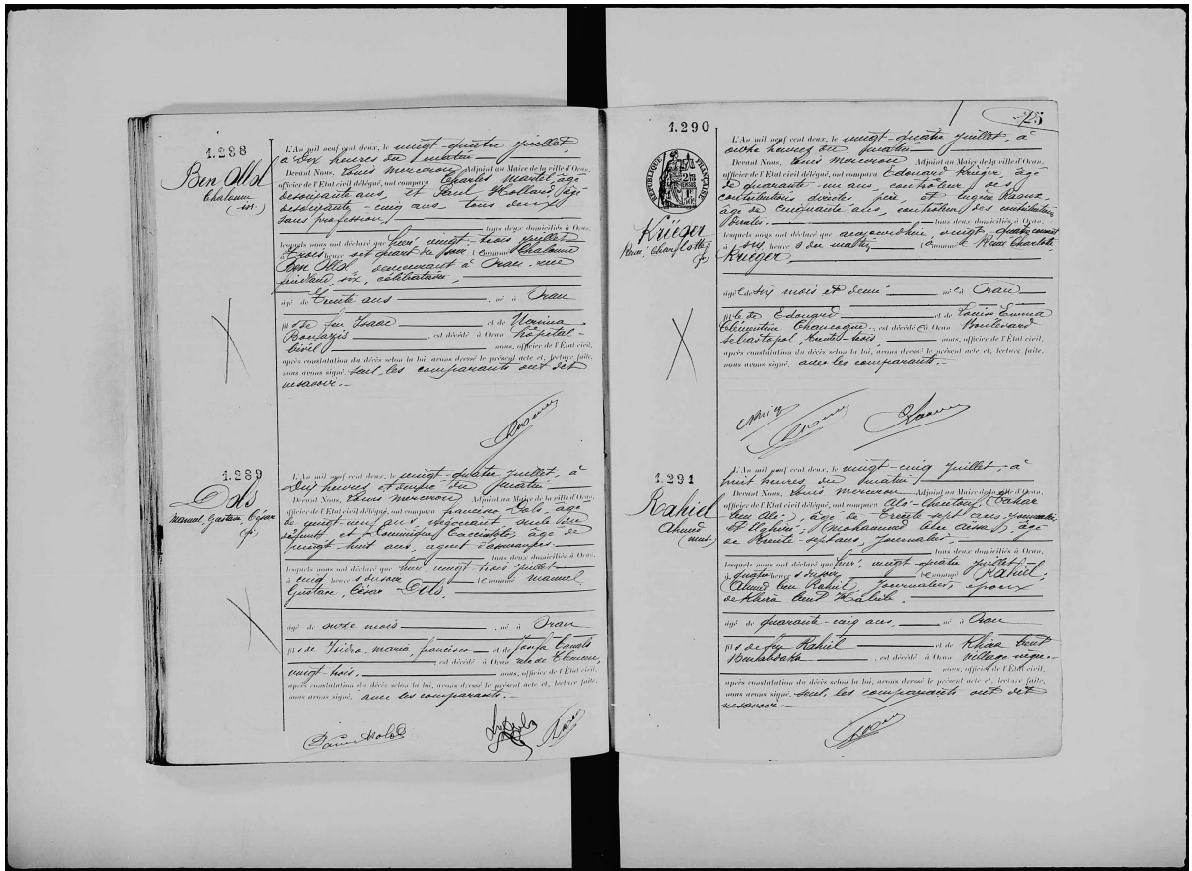 1.288
Ben Allol
Chaloum
(isr.)
L'An mil neuf cent deux, le vingt-quatre juillet,
à dix heures du matin
Devant Nous, Louis Mercuron Adjoint au Maire de la ville d'Oran,
officier de l'Etat civil délégué, ont comparu Charles Martel, âgé
de soixante ans, et Paul Hollard, âgé
de soixante-cinq ans, tous deux
sans profession,
tous deux domiciliés à Oran,
lesquels nous ont déclaré que hier, vingt-trois juillet
à trois heures et quart du soir le nommé Chaloum
Ben Allol, demeurant à Oran, rue
six, célibataire,
âgé de trente ans, né à Oran
fils de feu Isaac et de
est décédé à Oran hôpital-
civil nous, officier de l'Etat civil,
après constatation du décès selon la loi, avons dressé le présent acte et, lecture faite,
nous avons signé seul, les comparants ont dit
ne savoir.
1.289
Dols
Manuel, Gustave César
(fr)
L'An mil neuf cent deux, le vingt-quatre juillet, à
dix heures et demie du matin
Devant Nous, Louis Mercuron Adjoint au Maire de la ville d'Oran,
officier de l'Etat civil délégué, ont comparu Francisco Dols, âgé
de vingt-neuf ans, négociant, oncle du
défunt et Dominique âgé de
vingt huit ans, agent d'assurances
tous deux domiciliés à Oran,
lesquels nous ont déclaré que hier vingt-trois juillet
à cinq heures du soir le nommé Manuel
Gustave, César Dols,
âgé de onze mois, né à Oran
fils de Isidro, Maria, Francisco et de Josefa Canals
est décédé à Oran rue de Tlemcen,
vingt-trois, nous, officier de l'Etat civil,
après constatation du décès selon la loi, avons dressé le présent acte et, lecture faite,
nous avons signé avec les comparants.
1.290
RÉPUBLIQUE FRANÇAISE
Krieger
Renée, Charlotte
(fr)
25
L'An mil neuf cent deux, le vingt-quatre juillet, à
onze heures du matin
Devant Nous, Louis Mercuron Adjoint au Maire de la ville d'Oran,
officier de l'Etat civil délégué, ont comparu Edouard Krieger, âgé
de quarante-un ans, contrôleur des
contributions directes, père, et Eugène
âgé de cinquante ans, contrôleur des contributions
directes.
tous deux domiciliés à Oran,
lesquels nous ont déclaré que aujourd'hui, vingt-quatre courant
à six heures du matin, la nommée Renée Charlotte
Krieger,
âgée de six mois et demi née à Oran
fille de Edouard et de Louise Emma
Clémentine est décédée à Oran Boulevard
Sébastopol trente-trois, nous, officier de l'Etat civil,
après constatation du décès selon la loi, avons dressé le présent acte et, lecture faite,
nous avons signé avec les comparants.
1.291
Rahiel
Ahmed
(mus.)
L'An mil neuf cent deux, le vingt-cinq juillet, à
huit heures du matin
Devant Nous, Louis Mercuron Adjoint au Maire de la ville d'Oran,
officier de l'Etat civil délégué, ont comparu
ben Ali, âgé de trente sept ans, journalier
et Mohammed ben Aïssa, âgé
de trente-sept ans, journalier,
tous deux domiciliés à Oran,
lesquels nous ont déclaré que hier, vingt-quatre juillet
à quatre heures du soir le nommé Rahiel,
Ahmed ben Rahiel, journalier, époux
de Khira bent Habib.
âgé de quarante-cinq ans, né à Oran
fils de feu Rahiel et de Khira bent
est décédé à Oran village nègre
nous, officier de l'Etat civil,
après constatation du décès selon la loi, avons dressé le présent acte et, lecture faite,
nous avons signé seul, les comparants ont dit
ne savoir